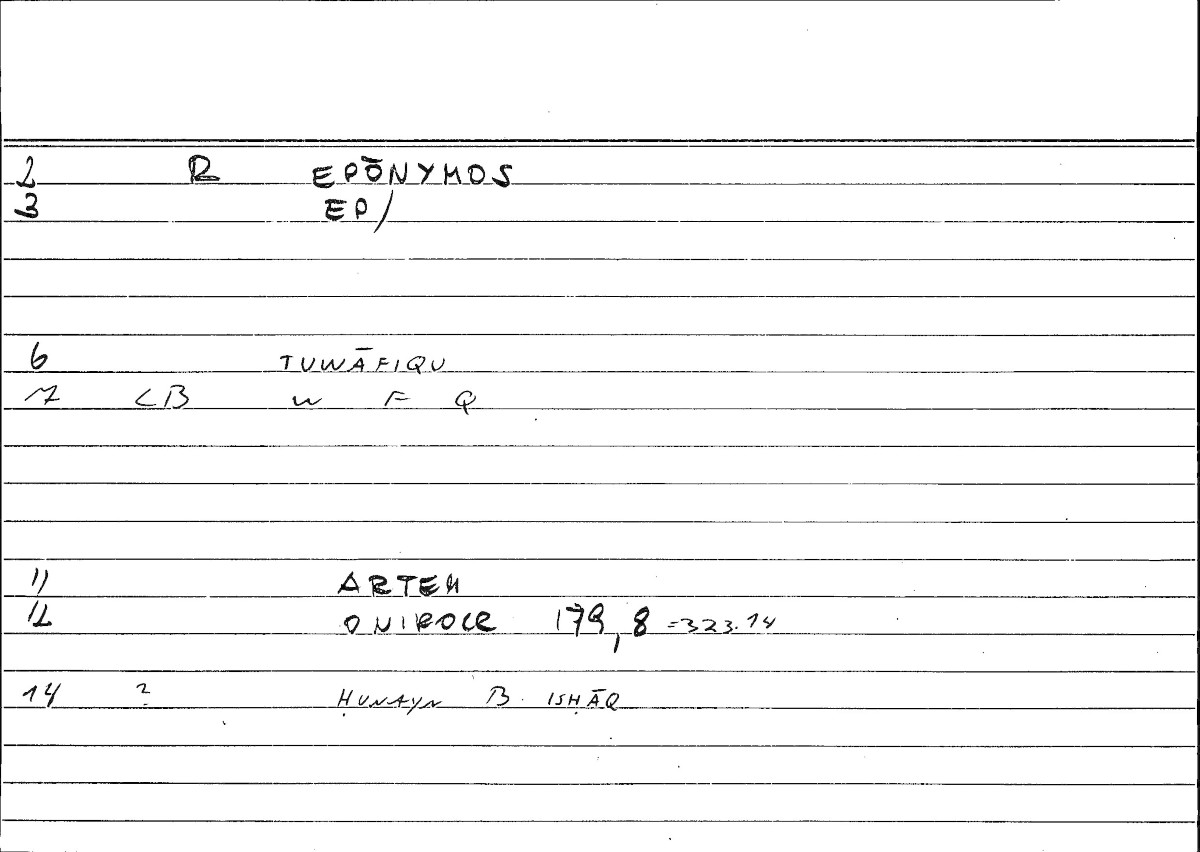 2 R EPŌNYMOS
3 EP/
6 TUWĀFIQU
7 <B W F Q
11 ARTEM
12 ONIROCR 179,8 =323.14
14 ? ḤUNAYN B. ISḤĀQ